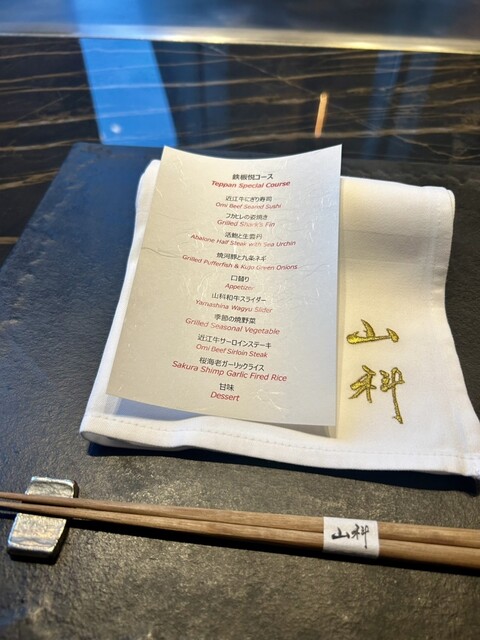 鉄板悦コース
Teppan Special Course
近江牛にぎり寿司
Omi Beef Seared Sushi
フカヒレの姿焼き
Grilled Shark's Fin
活鮑と生雲丹
Abalone Half Steak with Sea Urchin
焼河豚と九条ネギ
Grilled Pufferfish & Kujo Green Onions
口替り
Appetizer
山科和牛スライダー
Yamashina Wagyu Slider
季節の焼野菜
Grilled Seasonal Vegetable
近江牛サーロインステーキ
Omi Beef Sirloin Steak
桜海老ガーリックライス
Sakura Shimp Garlic Fired Rice
甘味
Dessert
山科
山科